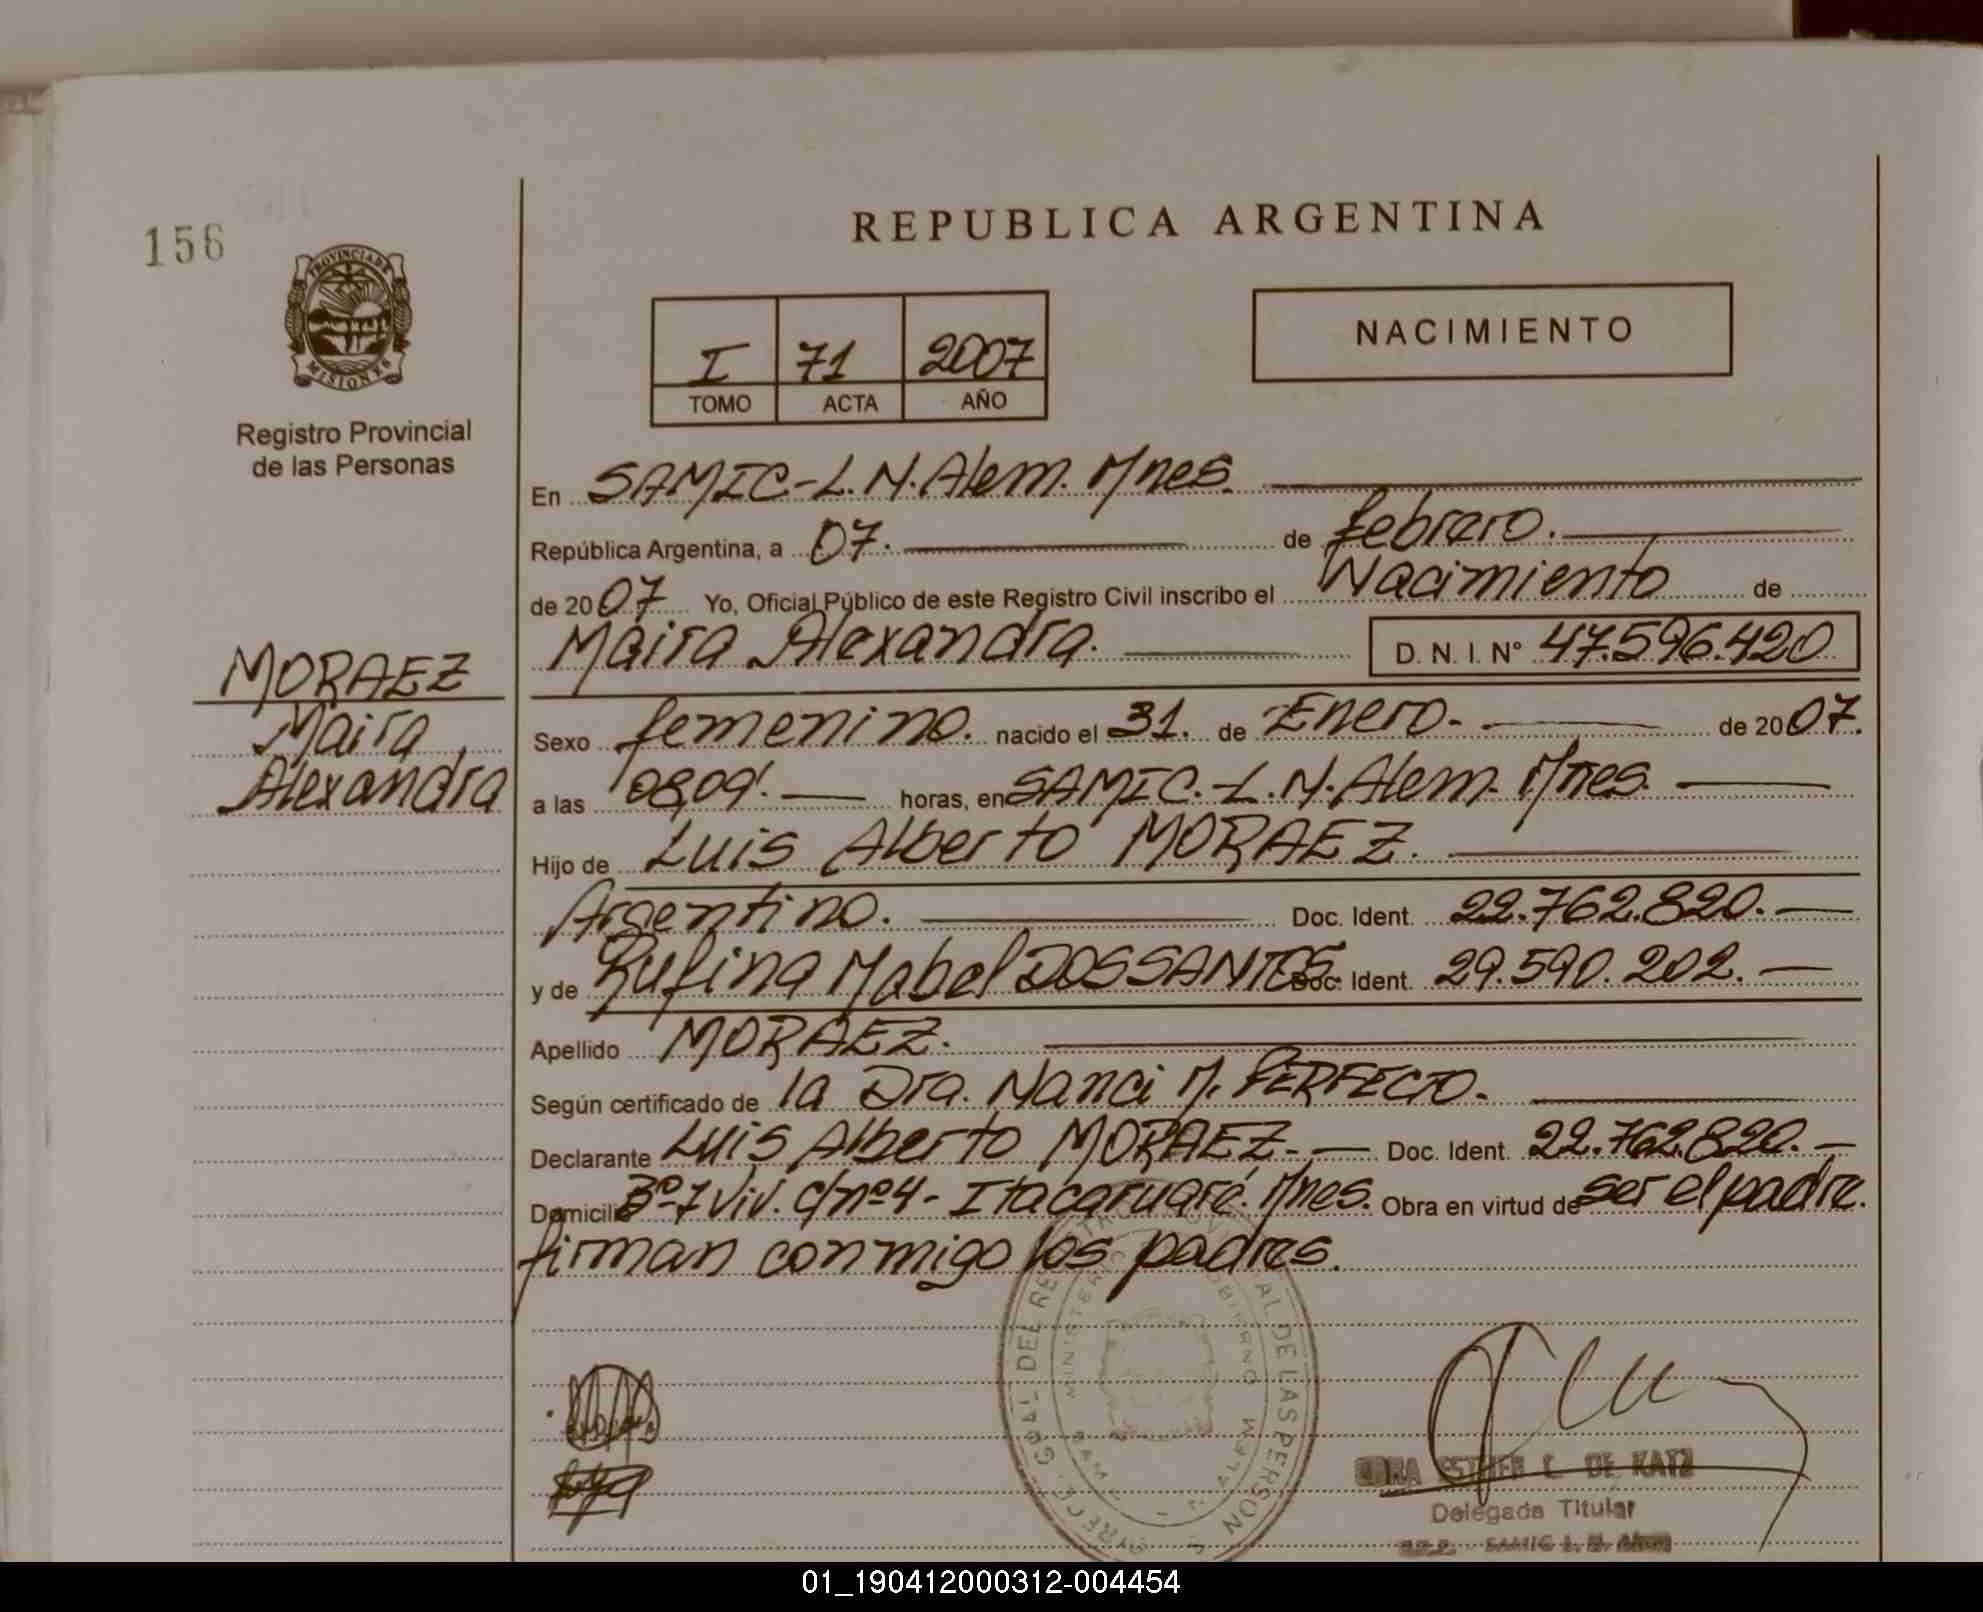 156
PROVINCIA DE
MISIONES
Registro Provincial
de las Personas
MORAEZ
Maira
Alexandra
REPUBLICA ARGENTINA
I 71 2007
TOMO ACTA AÑO
NACIMIENTO
En SAMIC-L.N.Alem. Mnes.
República Argentina, a 07. de febrero.
de 2007 Yo, Oficial Público de este Registro Civil inscribo el Nacimiento de
Maira Alexandra. D. N. I. N° 47.596.420
Sexo femenino. nacido el 31. de Enero. de 2007.
a las 08,09'. horas, en SAMIC.-L.N.Alem. Mnes.
Hijo de Luis Alberto MORAEZ.
Argentino. Doc. Ident. 22.762.820.
y de Rufina Mabel DOSSANTOS. Doc. Ident. 29.590.202.
Apellido MORAEZ.
Según certificado de la Dra. Nanci M. PERFECTO.
Declarante Luis Alberto MORAEZ. Doc. Ident. 22.762.820.
Domicilio Bº-7 Viv. c/nº4- Itacaruaré. Mnes. Obra en virtud de ser el padre.
firman conmigo los padres.
ESTHER L. DE KATZ
Delegada Titular
SAMIC L. N. Alem
01_190412000312-004454